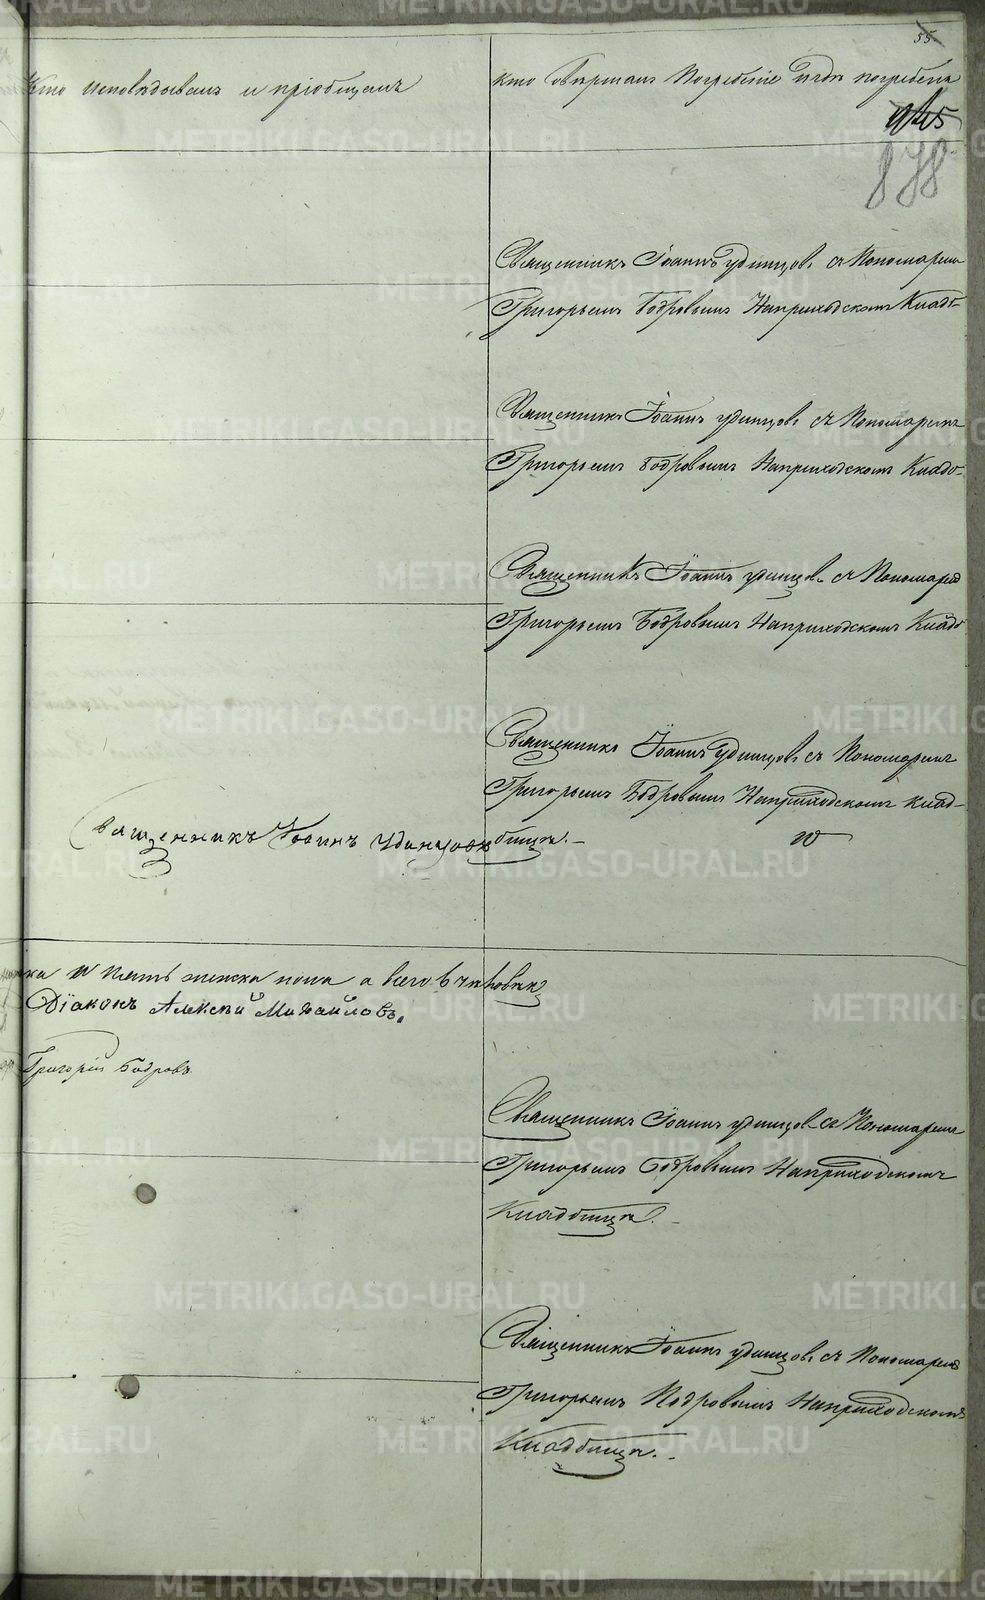 55
Кто исповѣдывалъ и пріобщалъ
кто совершалъ Погребеніе и гдѣ погребены
878
Священникъ Іоаннъ Удинцовъ съ Пономаремъ
Григорьемъ Бодровымъ На приходскомъ Кладб-
Священникъ Іоаннъ Удинцовъ съ Пономаремъ
Григорьемъ Бодровымъ На приходскомъ Кладб-
Священникъ Іоаннъ Удинцовъ съ Пономаремъ
Григорьемъ Бодровымъ На приходскомъ Кладб-
Священникъ Іоаннъ Удинцовъ съ Пономаремъ
Григорьемъ Бодровымъ На приходскомъ клад-
бищѣ.
Священникъ Іоаннъ Удинцовъ
ка и пять женска пола а всего 6 человѣкъ
Діаконъ Алексѣй Михайловъ.
Григорій Бодровъ
Священникъ Іоаннъ Удинцовъ съ Пономаремъ
Григорьемъ Бодровымъ На приходскомъ
Кладбищѣ.
Священникъ Іоаннъ Удинцовъ съ Пономаремъ
Григорьемъ Бодровымъ На приходскомъ
Кладбищѣ.
METRIKI.GASO-URAL.RU